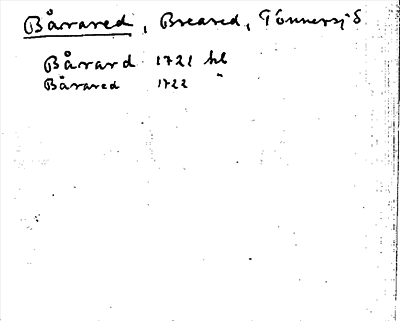 Båvared, Breared, Tönnersjö
Båvard 1721 hl
Båvared 1722 "